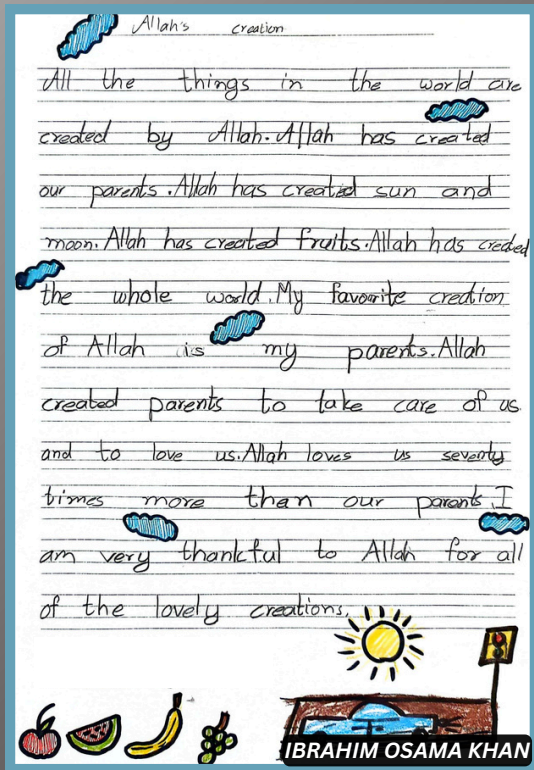 Allah's creation
All the things in the world are
created by Allah. Allah has created
our parents. Allah has created sun and
moon. Allah has created fruits. Allah has created
the whole world. My favourite creation
of Allah is my parents. Allah
created parents to take care of us
and to love us. Allah loves us seventy
times more than our parents. I
am very thankful to Allah for all
of the lovely creations.
IBRAHIM OSAMA KHAN